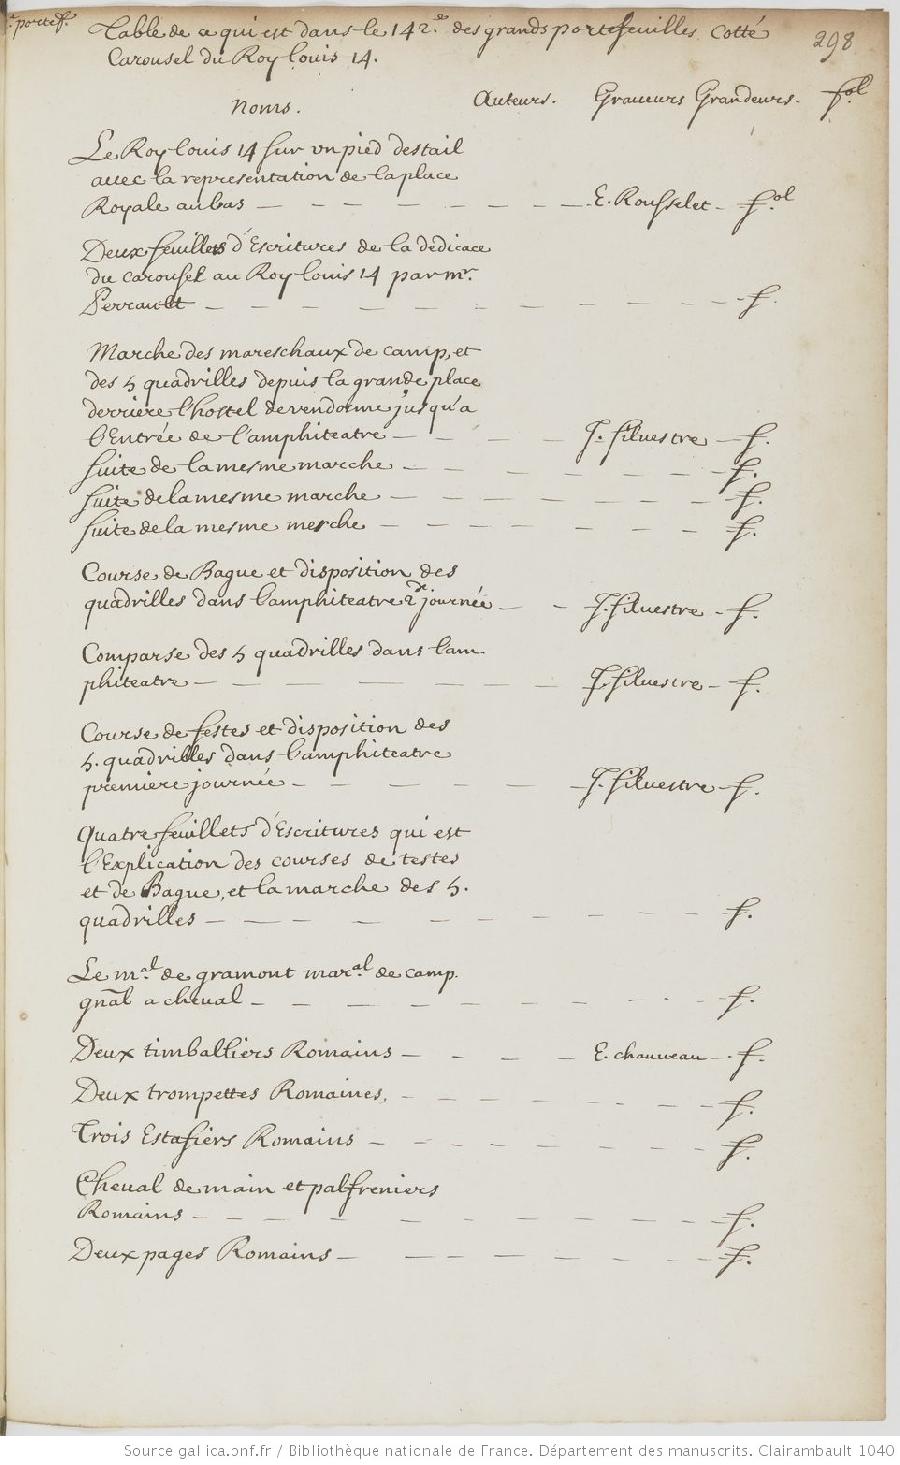 e. portef.
Table de ce qui est dans le 142.e des grands portefeuilles cotté
298
Carousel du Roy louis 14.
Noms. Auteurs. Graveurs Grandeurs. fol
Le Roy louis 14 sur un pied destail
avec la representation de la place
Royale au bas — — — — — — — E. Rousselet — f.ol
Deux feuillets d'Escritures de la dedicace
du carousel au Roy louis 14 par mr.
Perrault — — — — — — — — — f.
Marche des mareschaux de camp, et
des 5 quadrilles depuis la grande place
derriere l'hostel de vendome jusqu'a
l'Entrée de l'amphiteatre — — — — J. silvestre — f.
suite de la mesme marche — — — — — — — f.
suite de la mesme marche — — — — — — — f.
suite de la mesme merche — — — — — — — f.
Course de Bague et disposition des
quadrilles dans l'amphiteatre 2.de journée — — J. silvestre — f.
Comparse des 5 quadrilles dans l'am
phiteatre — — — — — — J. silvestre — f.
Course de festes et disposition des
5. quadrilles dans l'amphiteatre
premiere journée — — — — — J. silvestre — f.
Quatre feuillets d'Escritures qui est
l'Explication des courses de testes
et de Bague, et la marche des 5.
quadrilles — — — — — — — — — f.
Le m.al de gramont mar.al de camp.
gñal a cheval — — — — — — — — — f.
Deux timballiers Romains — — — — E. chauveau — f.
Deux trompettes Romaines. — — — — — — — f.
Trois Estafiers Romains — — — — — — — f.
Cheval de main et palfreniers
Romains — — — — — — — — — f.
Deux pages Romains — — — — — — — f.
Source gallica.bnf.fr / Bibliothèque nationale de France. Département des manuscrits. Clairambault 1040